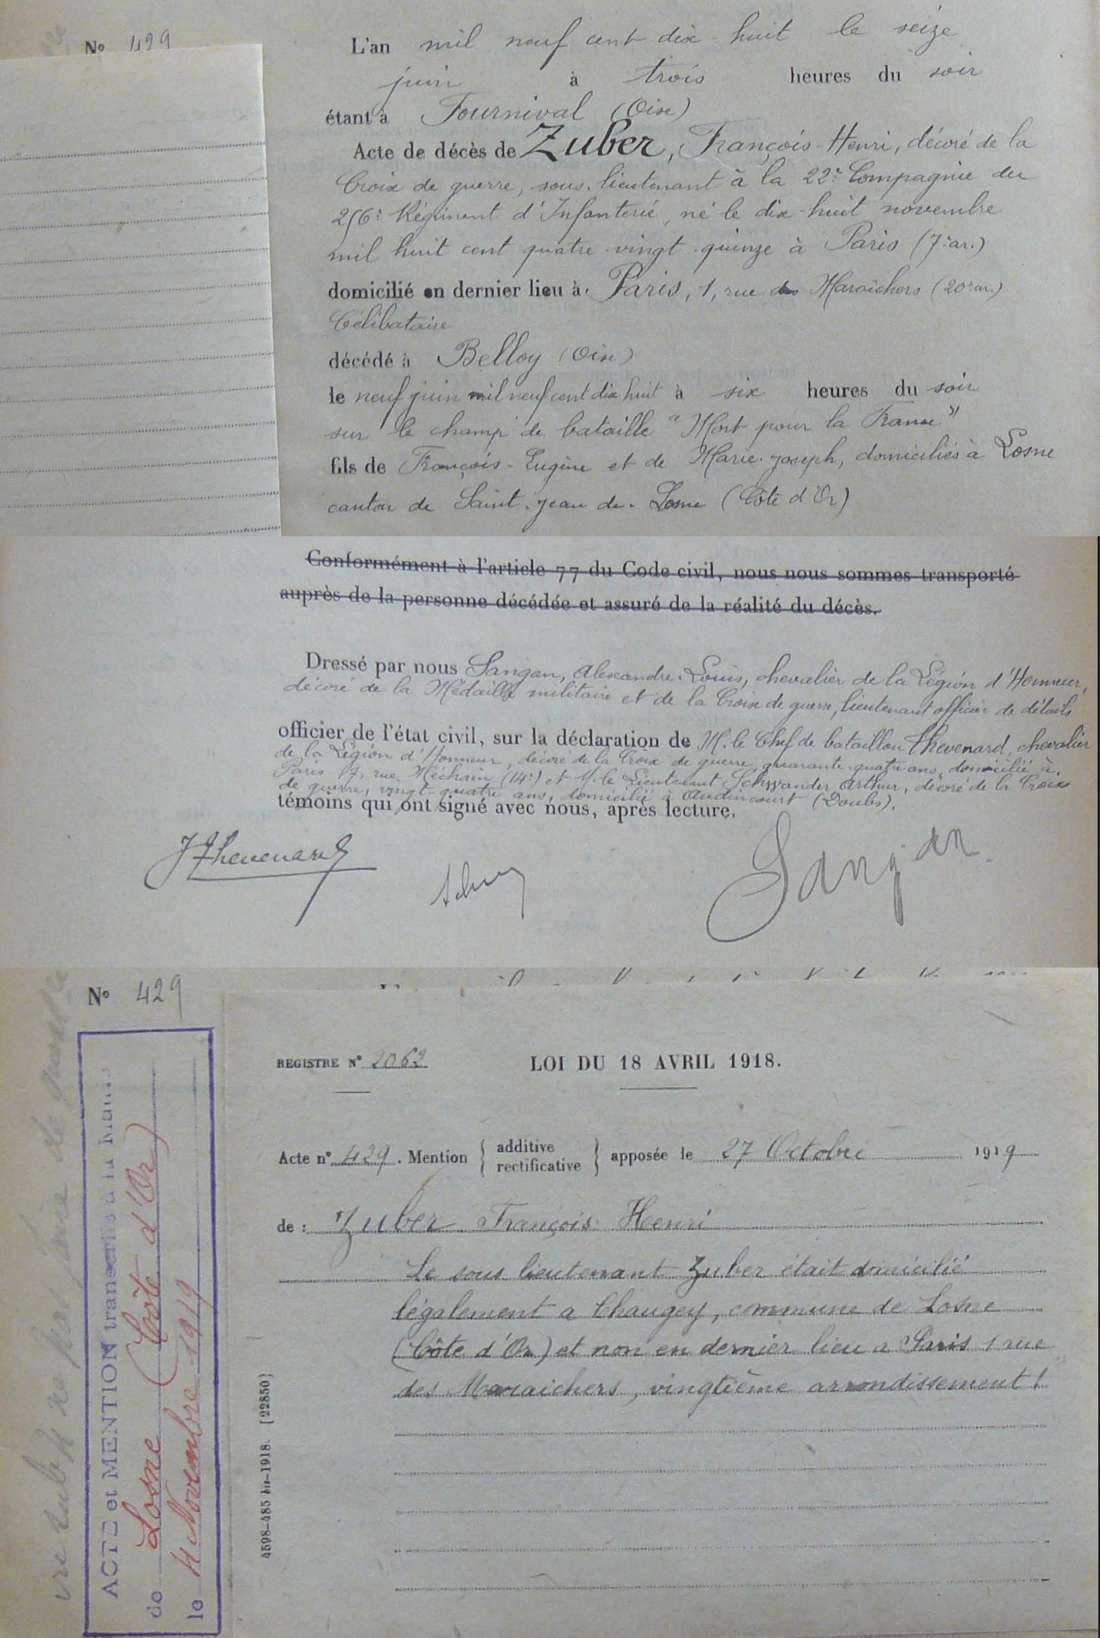 N° 429
L'an mil neuf cent dix-huit le seize
juin à trois heures du soir
étant à Fournival (Oise)
Acte de décès de Zuber, François-Henri, décoré de la
Croix de guerre, sous-lieutenant à la 22e Compagnie du
256e Régiment d'Infanterie, né le dix-huit novembre
mil huit cent quatre-vingt-quinze à Paris (7e ar.)
domicilié en dernier lieu à Paris, 1, rue des Maraîchers (20e ar.)
Célibataire
décédé à Belloy (Oise)
le neuf juin mil neuf cent dix huit à six heures du soir
sur le champ de bataille "Mort pour la France"
fils de François-Eugène et de Marie-Joseph, domiciliés à Losne
canton de Saint-Jean-de-Losne (Côte d'Or)
Conformément à l'article 77 du Code civil, nous nous sommes transporté
auprès de la personne décédée et assuré de la réalité du décès.
Dressé par nous Sangan, Alexandre-Louis, chevalier de la Légion d'Honneur,
décoré de la Médaille militaire et de la Croix de guerre, lieutenant officier de détails
officier de l'état civil, sur la déclaration de M. le Chef de bataillon Thevenard, chevalier
de la Légion d'Honneur, décoré de la Croix de guerre, quarante-quatre ans, domicilié à
Paris rue Méchain (14e) et M. le Lieutenant Schwander Arthur, décoré de la Croix
de guerre, vingt-quatre ans, domicilié à Audincourt (Doubs),
témoins qui ont signé avec nous, après lecture.
J Thevenard
Sangan
N° 429
ACTE et MENTION transcrits à la Mairie
de Losne (Côte d'Or)
le 4 Novembre 1919
REGISTRE N° 2062
LOI DU 18 AVRIL 1918.
Acte n° 429. Mention { additive
rectificative } apposée le 27 Octobre 1919
de : Zuber François Henri
Le sous lieutenant Zuber était domicilié
légalement a Chaugey, commune de Losne
(Côte d'Or) et non en dernier lieu a Paris 1 rue
des Maraichers, vingtième arrondissement /.
4598-485 bis-1918. [22850]